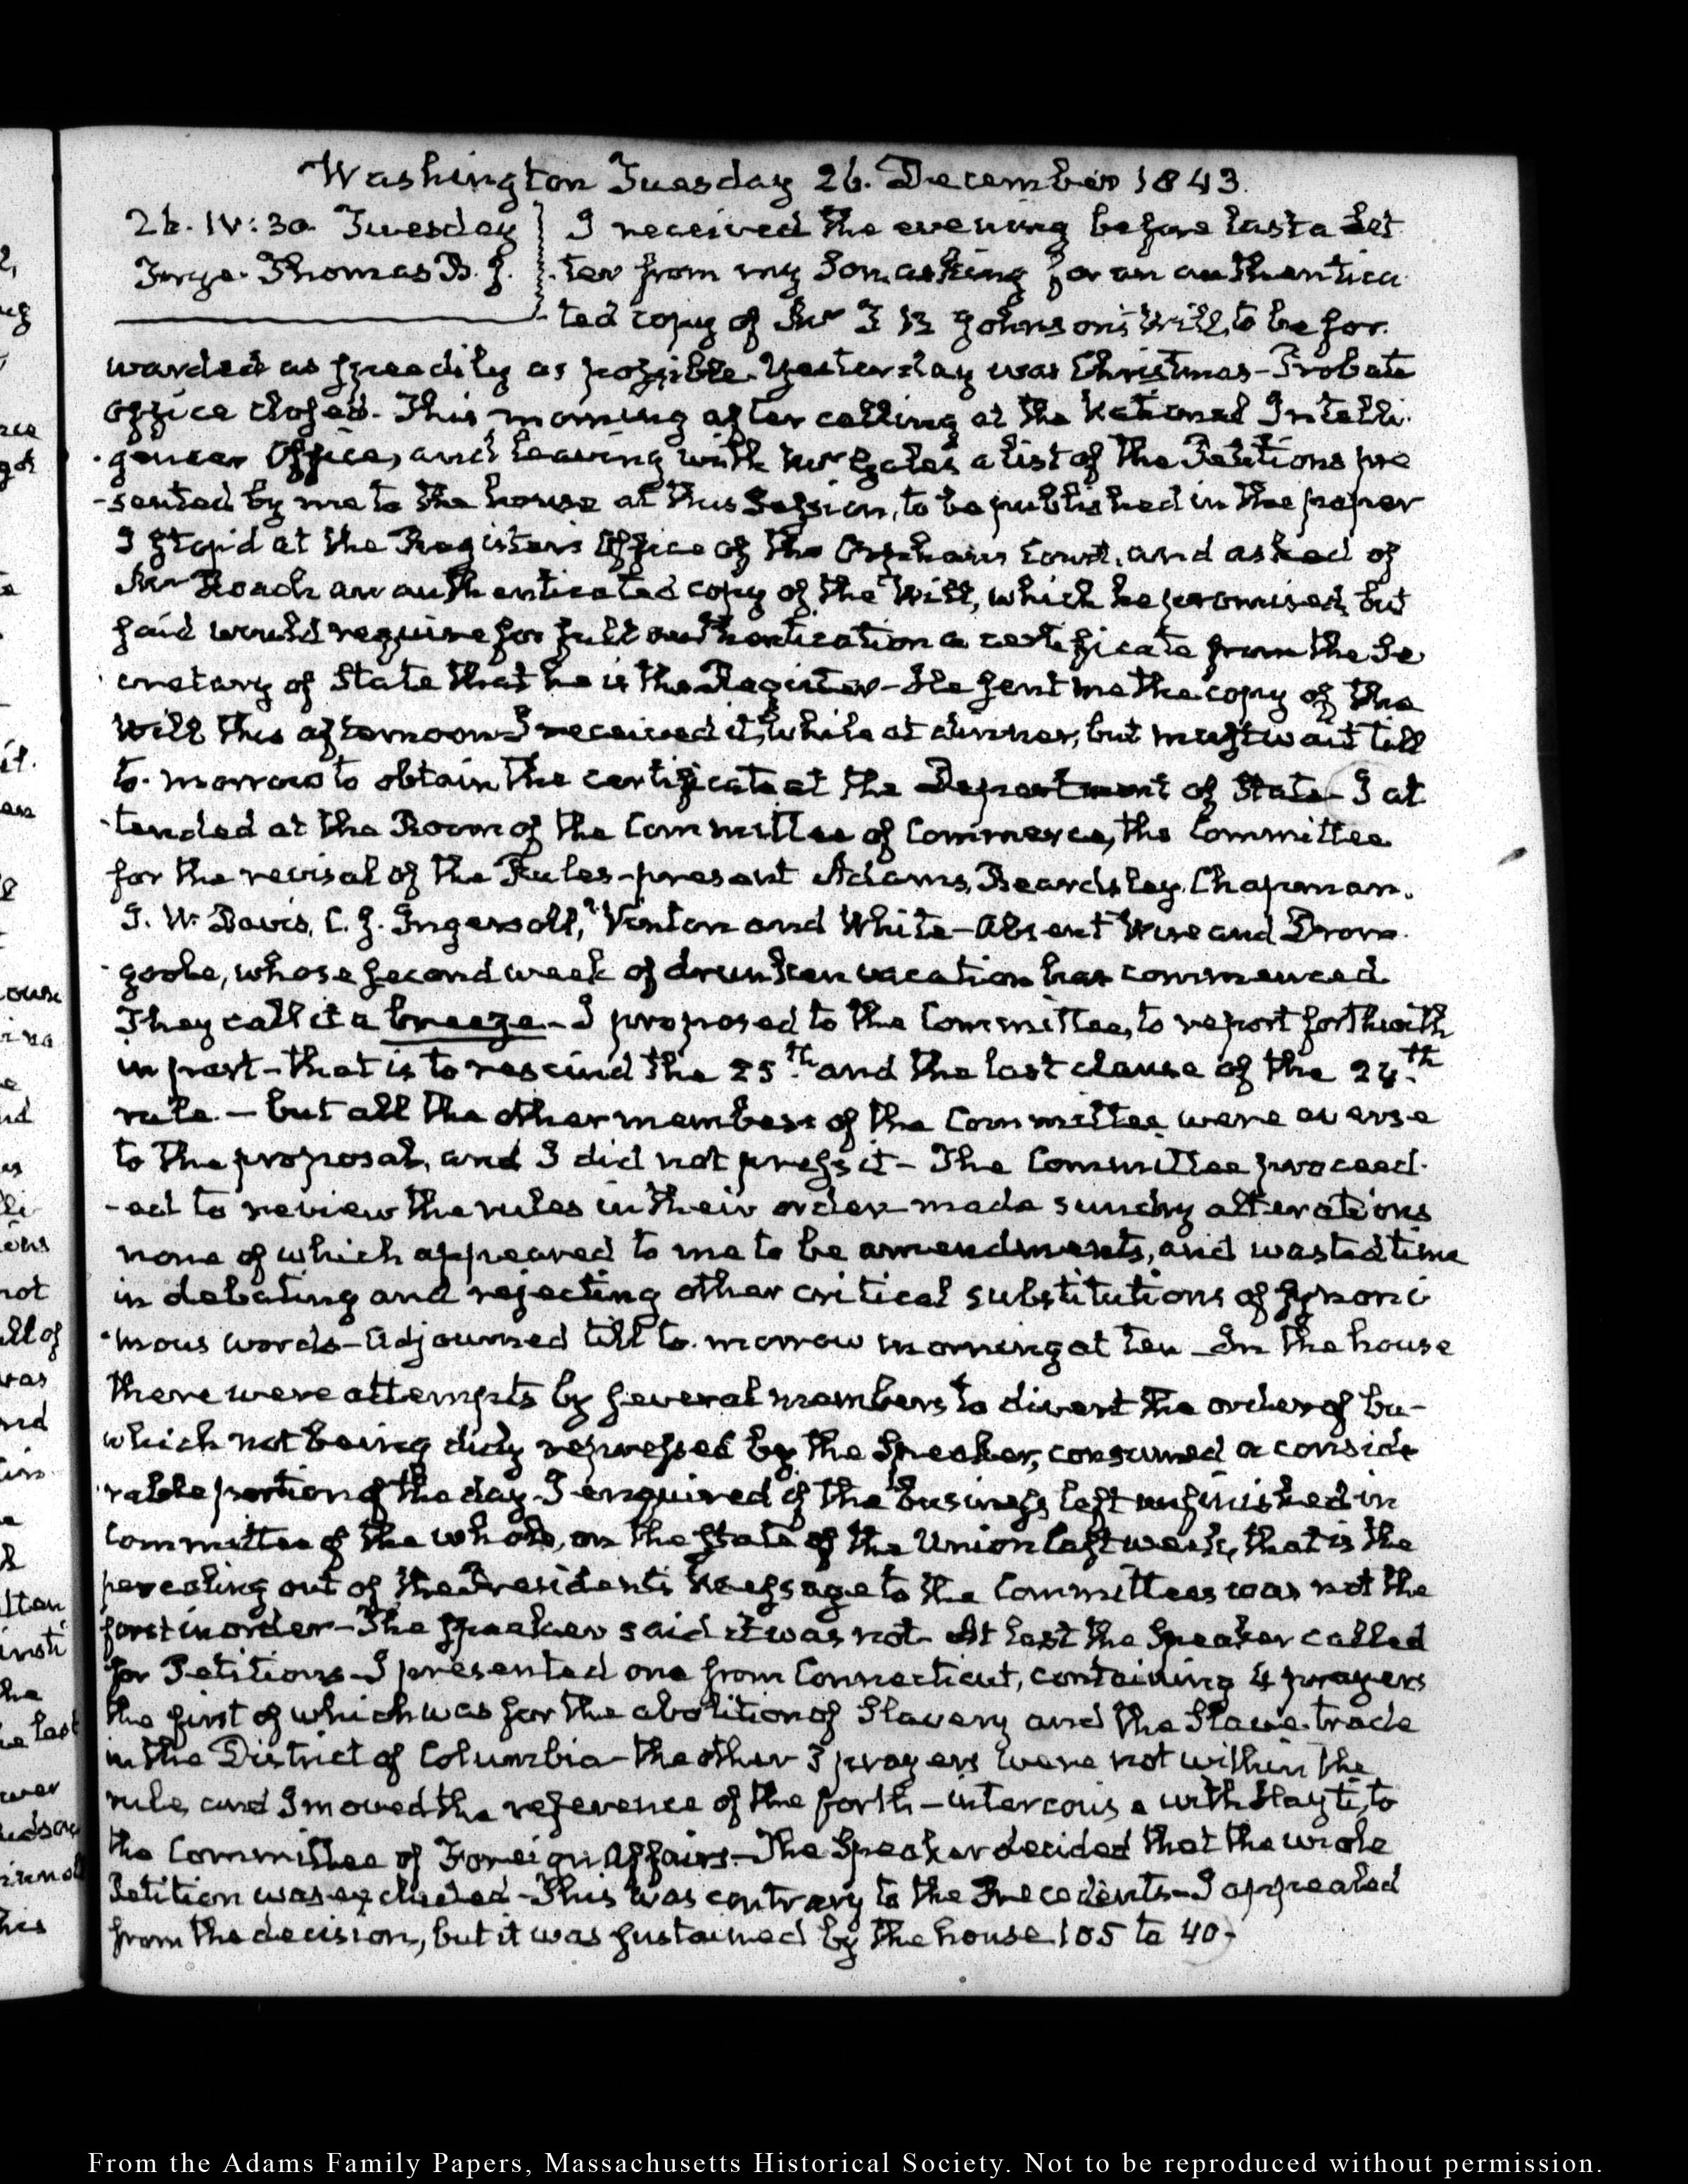 Washington Tuesday 26. December 1843.
26. IV:30. Tuesday
Thomas B. J.
I received the evening before last a let
ter from my Son asking for an authentica
ted copy of Mr T B Johnson's Will, to be for
warded as speedily as possible. Yesterday was Christmas - Probate
Office closed. This morning after calling at the National Intelli
gencer Office, and leaving with Mr Gales a list of the Petitions pre
-sented by me to the house at this Session, to be published in the paper
I stop'd at the Register's Office of the Orphans Court, and asked of
Mr Roach an authenticated copy of the Will, which he promised, but
said would require for full authentication a certificate from the Se
cretary of State that he is the Register - He sent me the copy of the
Will this afternoon I received it, while at dinner, but must wait till
to-morrow to obtain the certificate at the Department of State - I at
tended at the Room of the Committee of Commerce, the Committee
for the revisal of the Rules - present Adams, Beardsley, Chapman.
J. W. Davis, C. J. Ingersoll, Vinton and White - Absent Wise and Drom
goole, whose second week of drunken vacation has commenced
They call it a breeze - I proposed to the Committee, to report forthwith
in part - that is to rescind the 25.th and the last clause of the 24.th
rule. - but all the other members of the Committee were averse
to the proposal, and I did not press it - The Committee proceed
-ed to review the rules in their order made sundry alterations
none of which appeared to me to be amendments, and wasted time
in debating and rejecting other critical substitutions of synoni
mous words - Adjourned till to-morrow morning at ten - In the house
there were attempts by several members to divert the order of bu-
which not being duly repressed by the Speaker, consumed a conside
rable portion of the day - I enquired if the business left unfinished in
Committee of the whole, on the state of the Union last week, that is the
parcelling out of the President's Message to the Committees was not the
first in order - The Speaker said it was not - At last the Speaker called
for Petitions - I presented one from Connecticut, containing 4 prayers
the first of which was for the abolition of Slavery and the Slave-trade
in the District of Columbia - the other 3 prayers were not within the
rule, and I moved the reference of the forth - intercourse with Hayti, to
the Committee of Foreign Affairs - The Speaker decided that the whole
Petition was excluded - This was contrary to the Precedents - I appealed
from the decision, but it was sustained by the house 105 to 40 -
From the Adams Family Papers, Massachusetts Historical Society. Not to be reproduced without permission.